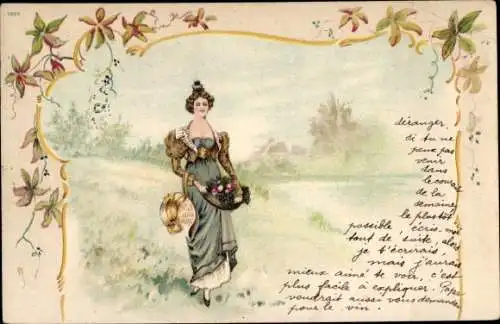 déranger
si tu ne
peux pas
venir
dans
le cours
de la
semaine
le plus tôt
possible, écris moi
tout de suite, alors
je t'écrirais,
mais j'aurais
mieux aimé te voir, c'est
plus facile à expliquer. Papa
voudrait aussi vous demander
pour le vin.